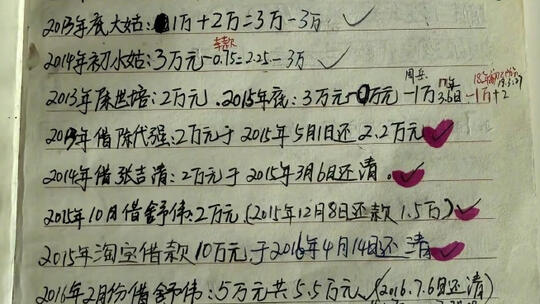 2013年底大姑：1万+2万=3万-3万 ✓
车款
2014年初小姑：3万元-0.75=2.25-3万 ✓
2013年陈世培：2万元，2015年底：3万元-0万元-1万 -1万+2
2013年借陈代强：2万元于2015年5月1日还2.2万元 ✓
2014年借张吉清：2万元于2015年3月6日还清。✓
2015年10月借舒伟：2万元(2015年12月8日还款1.5万) ✓
2015年淘宝借款10万元于2016年4月14日还清 ✓
2016年2月份借舒伟：5万元共5.5万元(2016.7.6日还清)